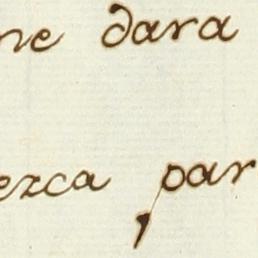 ne dara
ezca, par